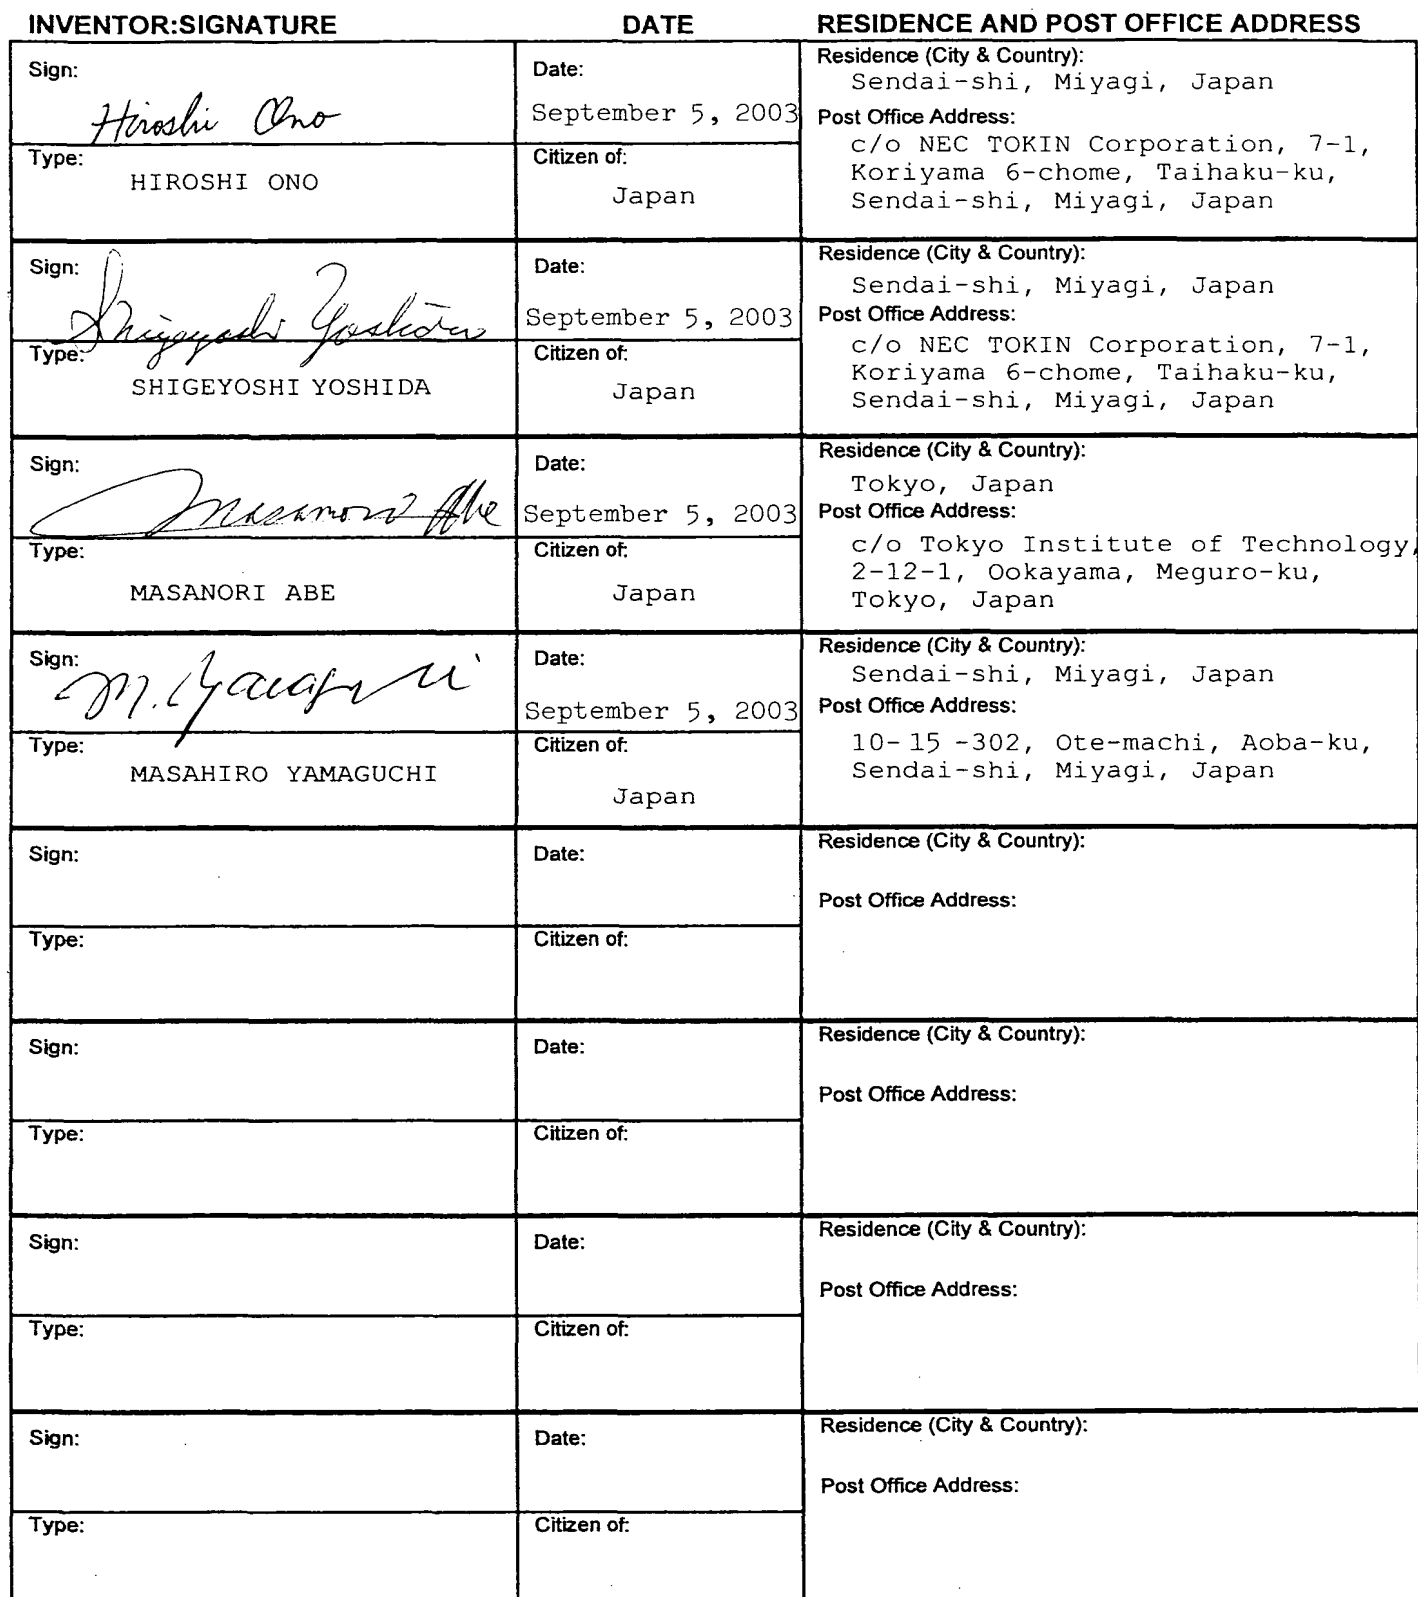 INVENTOR:SIGNATURE DATE RESIDENCE AND POST OFFICE ADDRESS
Sign:
Hiroshi Ono
Date:
September 5, 2003
Residence (City & Country):
Sendai-shi, Miyagi, Japan
Post Office Address:
c/o NEC TOKIN Corporation, 7-1,
Koriyama 6-chome, Taihaku-ku,
Sendai-shi, Miyagi, Japan
Type:
HIROSHI ONO
Citizen of:
Japan
Sign:
Shigeyoshi Yoshida
Date:
September 5, 2003
Residence (City & Country):
Sendai-shi, Miyagi, Japan
Post Office Address:
c/o NEC TOKIN Corporation, 7-1,
Koriyama 6-chome, Taihaku-ku,
Sendai-shi, Miyagi, Japan
Type:
SHIGEYOSHI YOSHIDA
Citizen of:
Japan
Sign:
Masanori Abe
Date:
September 5, 2003
Residence (City & Country):
Tokyo, Japan
Post Office Address:
c/o Tokyo Institute of Technology,
2-12-1, Ookayama, Meguro-ku,
Tokyo, Japan
Type:
MASANORI ABE
Citizen of:
Japan
Sign:
M. Yamaguchi
Date:
September 5, 2003
Residence (City & Country):
Sendai-shi, Miyagi, Japan
Post Office Address:
10-15-302, Ote-machi, Aoba-ku,
Sendai-shi, Miyagi, Japan
Type:
MASAHIRO YAMAGUCHI
Citizen of:
Japan
Sign:
Date:
Residence (City & Country):
Post Office Address:
Type:
Citizen of:
Sign:
Date:
Residence (City & Country):
Post Office Address:
Type:
Citizen of:
Sign:
Date:
Residence (City & Country):
Post Office Address:
Type:
Citizen of:
Sign:
Date:
Residence (City & Country):
Post Office Address:
Type:
Citizen of: